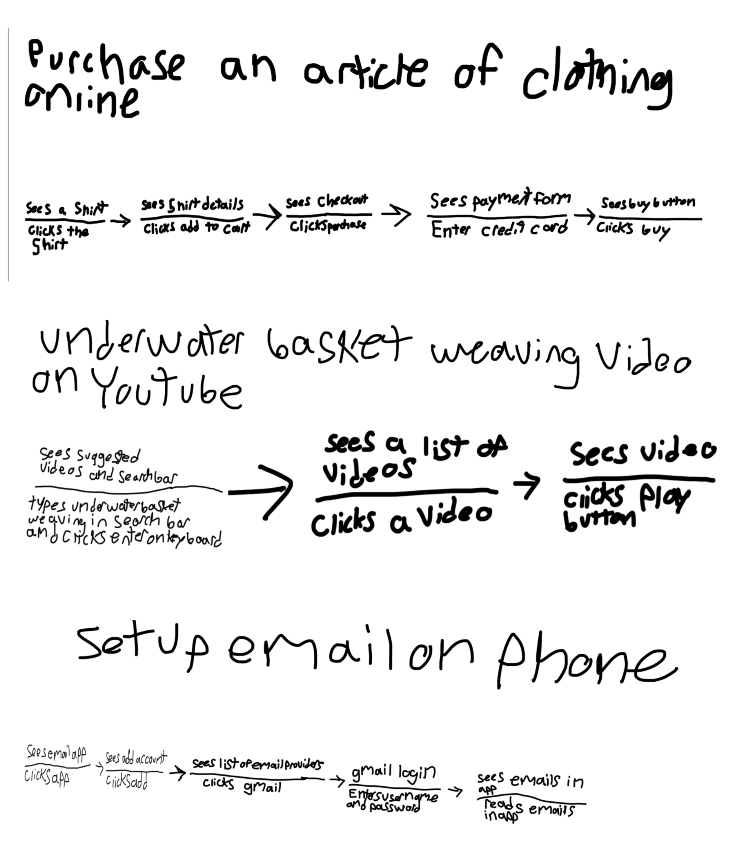 Purchase an article of clothing
online
Sees a Shirt
Clicks the
Shirt
Sees Shirt details
Clicks add to cart
Sees Checkout
Clicks purchase
Sees payment form
Enter credit card
Sees buy button
Clicks buy
underwater basket weaving video
on YouTube
Sees suggested
videos and searchbar
types underwater basket
weaving in search bar
and clicks enter on keyboard
sees a list of
videos
clicks a video
sees video
clicks play
button
Setup email on phone
Sees email app
Clicks app
Sees add account
Clicks add
sees list of email providers
clicks gmail
gmail login
Enters username
and password
sees emails in
app
reads emails
in app